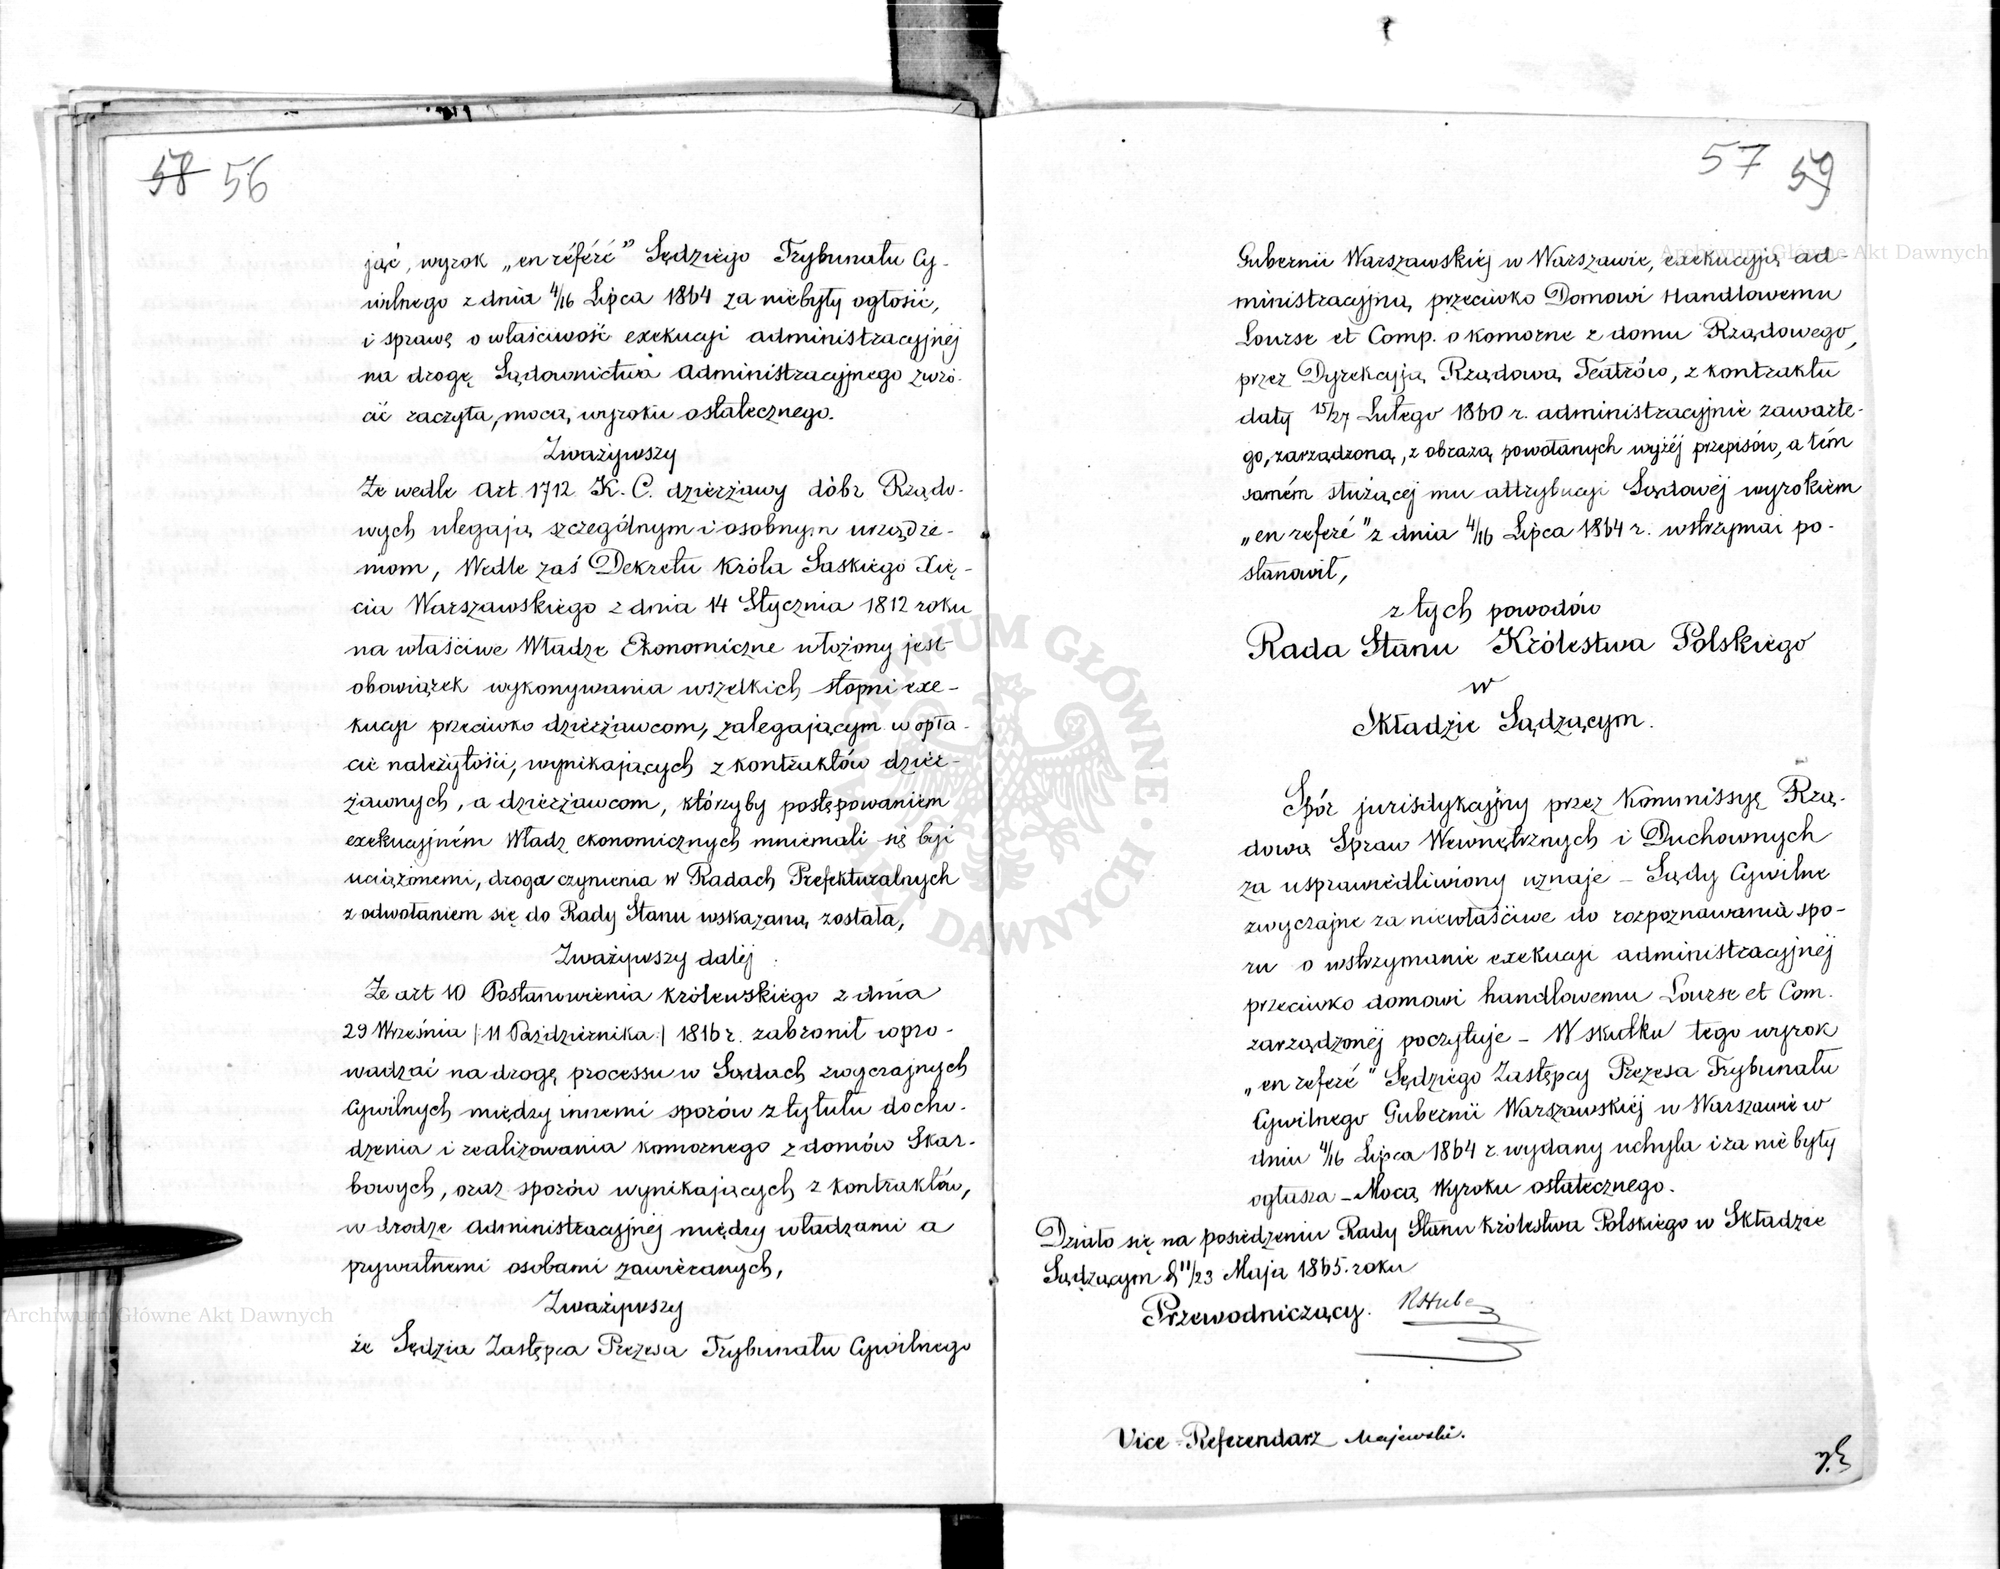 58 56
jąć, wyrok „en référé” Sędziego Trybunału Cy-
wilnego z dnia 4/16 Lipca 1864 za niebyły ogłosić,
i sprawę o właściwość exekucyi administracyjnéj
na drogę Sądownictwa administracyjnego zwró-
cić raczyła, mocą wyroku ostatecznego.
Zważywszy
Że wedle Art. 1712 K. C. dzierżawy dóbr Rządo-
wych ulegają szczególnym i osobnym urządze-
niom, Wedle zaś Dekretu Króla Saskiego Xię-
cia Warszawskiego z dnia 14 Stycznia 1812 roku
na właściwe Władze Ekonomiczne włożony jest
obowiązek wykonywania wszelkich stopni exe-
kucyi przeciwko dzierżawcom, zalegającym w opła-
cie należytości, wynikających z kontraktów dzier-
żawnych, a dzierżawcom, którzyby postępowaniem
exekucyjném Władz ekonomicznych mniemali się być
uciążonemi, droga czynienia w Radach Prefekturalnych
z odwołaniem się do Rady Stanu wskazaną została,
Zważywszy daléj
Że art 10 Postanowienia Królewskiego z dnia
29 Września /: 11 Października :/ 1816 r. zabronił wpro-
wadzać na drogę processu w Sądach zwyczajnych
Cywilnych między innemi sporów z tytułu docho-
dzenia i realizowania komornego z domów Skar-
bowych, oraz sporów wynikających z kontraktów,
w drodze administracyjnéj między władzami a
prywatnemi osobami zawieranych,
Zważywszy
że Sędzia Zastępca Prezesa Trybunału Cywilnego
57 59
Gubernii Warszawskiéj w Warszawie, exekucyją ad-
ministracyjną przeciwko Domowi Handlowemu
Lourse et Comp. o komorne z domu Rządowego,
przez Dyrekcyją Rządową Teatrów, z kontraktu
daty 15/27 Lutego 1860 r. administracyjnie zawarte-
go, zarządzoną, z obrazą powołanych wyżéj przepisów, a tém
samém służącéj mu attrybucyi Sądowéj wyrokiem
„en referé” z dnia 4/16 Lipca 1864 r. wstrzymać po-
stanowił,
z tych powodów
Rada Stanu Królestwa Polskiego
w
Składzie Sądzącym.
Spór jurisdykcyjny przez Kommissyę Rzą-
dową Spraw Wewnętrznych i Duchownych
za usprawiedliwiony uznaje – Sądy Cywilne
zwyczajne za niewłaściwe do rozpoznawania spo-
ru o wstrzymanie exekucyi administracyjnéj
przeciwko domowi handlowemu Lourse et Com.
zarządzonéj poczytuje – W skutku tego wyrok
„en referé” Sędziego Zastępcy Prezesa Trybunału
Cywilnego Gubernii Warszawskiéj w Warszawie w
dniu 4/16 Lipca 1864 r. wydany uchyla i za niebyły
ogłasza – Mocą Wyroku ostatecznego.
Działo się na posiedzeniu Rady Stanu Królestwa Polskiego w Składzie
Sądzącym d 11/23 Maja 1865. roku
Przewodniczący. RHube
Vice-Referendarz Majewski.
Archiwum Główne Akt Dawnych
Archiwum Główne Akt Dawnych
ARCHIWUM GŁÓWNE AKT DAWNYCH